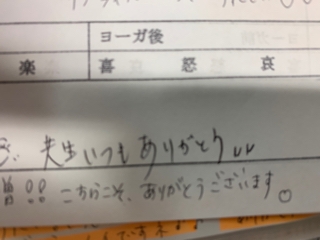 ヨーガ後
楽 喜 怒 哀
先生いつもありがとう
!! こちらこそ、ありがとうございます。